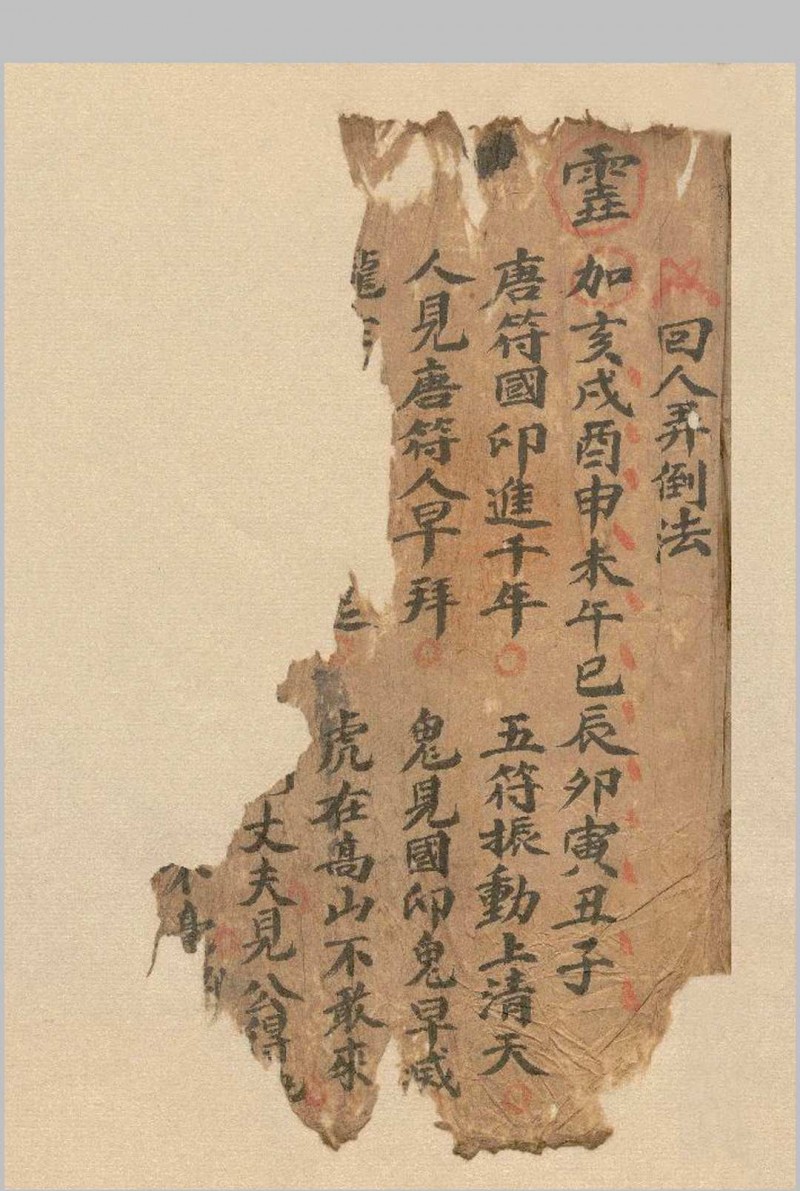 回人弄倒法
加亥戌酉申未午巳辰卯寅丑子
唐符國印進千年 五符振動上清天
人見唐符人早拜 鬼見國印鬼早滅
龍 虎在高山不敢來
丈夫見公得
不身